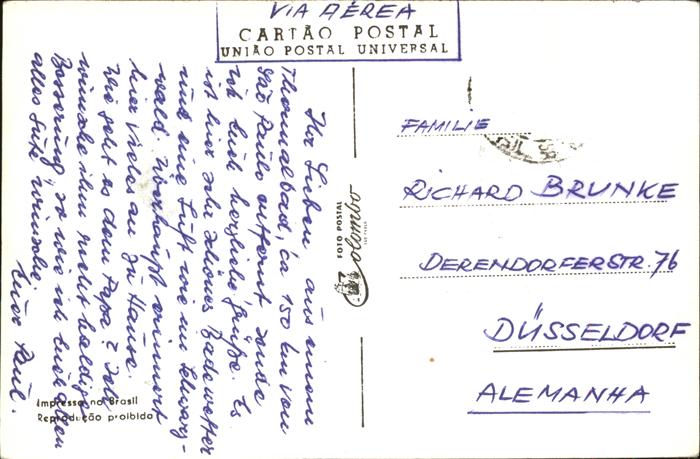 VIA AÉREA
CARTÃO POSTAL
UNIÃO POSTAL UNIVERSAL
Ihr Lieben aus einem
Thermalbad, ca 150 km von
São Paulo entfernt sende
ich Euch herzliche Grüße. Es
ist hier sehr schönes Badewetter
und eine Luft wie im Schwarz-
wald. Überhaupt erinnert
hier vieles an zu Hause.
Wie geht es dem Papa? Ich
wünsche ihm recht baldige
Besserung, so wie ich Euch allen
alles Gute wünsche
Euer Paul.
FOTO POSTAL
colombo
SÃO PAULO
FAMILIE
RICHARD BRUNKE
DERENDORFERSTR. 76
DÜSSELDORF
ALEMANHA
Impresso no Brasil
Reprodução proibida